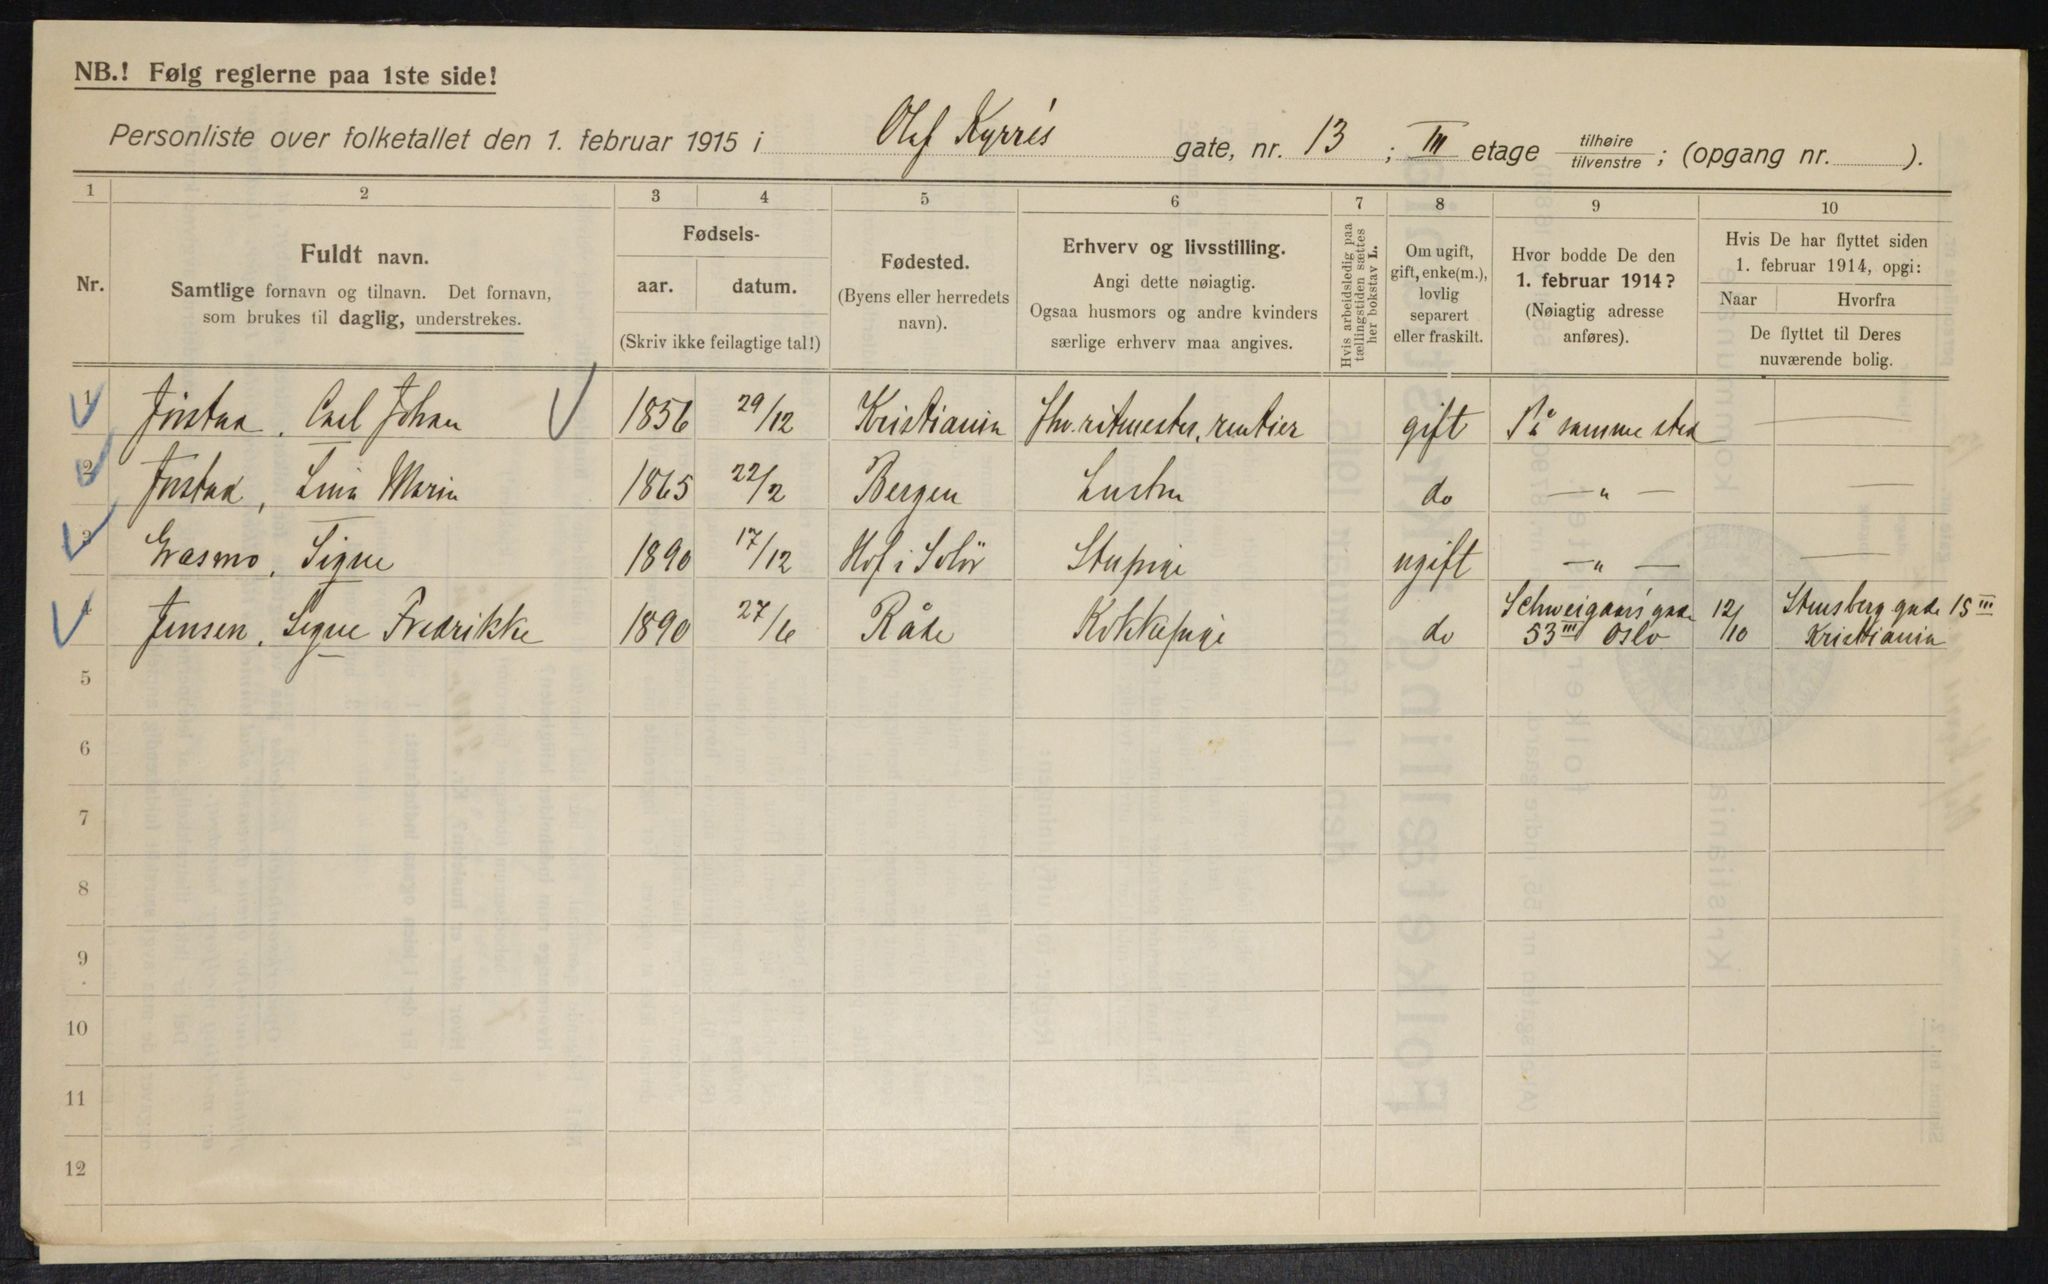 NB.! Følg reglerne paa 1ste side!
Personliste over folketallet den 1. februar 1915 i Olaf Kyrrés gate, nr. 13 ; III etage tilhøire / tilvenstre ; (opgang nr. ).
1 2 3 4 5 6 7 8 9 10
Nr.
Fuldt navn.
Samtlige fornavn og tilnavn. Det fornavn,
som brukes til daglig, understrekes.
Fødsels-
aar. datum.
(Skriv ikke feilagtige tal!)
Fødested.
(Byens eller herredets
navn).
Erhverv og livsstilling.
Angi dette nøiagtig.
Ogsaa husmors og andre kvinders
særlige erhverv maa angives.
Hvis arbeidsledig paa
tællingstiden sættes
her bokstav L.
Om ugift,
gift, enke(m.),
lovlig
separert
eller fraskilt.
Hvor bodde De den
1. februar 1914?
(Nøiagtig adresse
anføres).
Hvis De har flyttet siden
1. februar 1914, opgi:
Naar Hvorfra
De flyttet til Deres
nuværende bolig.
1 Carl Johan 1856 29/12 Kristiania ritmester, rentier gift På samme sted —
2 Marie 1865 22/2 Bergen Hustru do — „ — —
3 Græsmo, Signe 1890 17/12 Hof i Solör Stupige ugift — „ — —
4 Jensen, Signe Fredrikke 1890 27/6 Råde Kokkepige do Schweigaards gade 53 III Oslo 12/10 Stensberg gade 15 III Kristiania
5
6
7
8
9
10
11
12